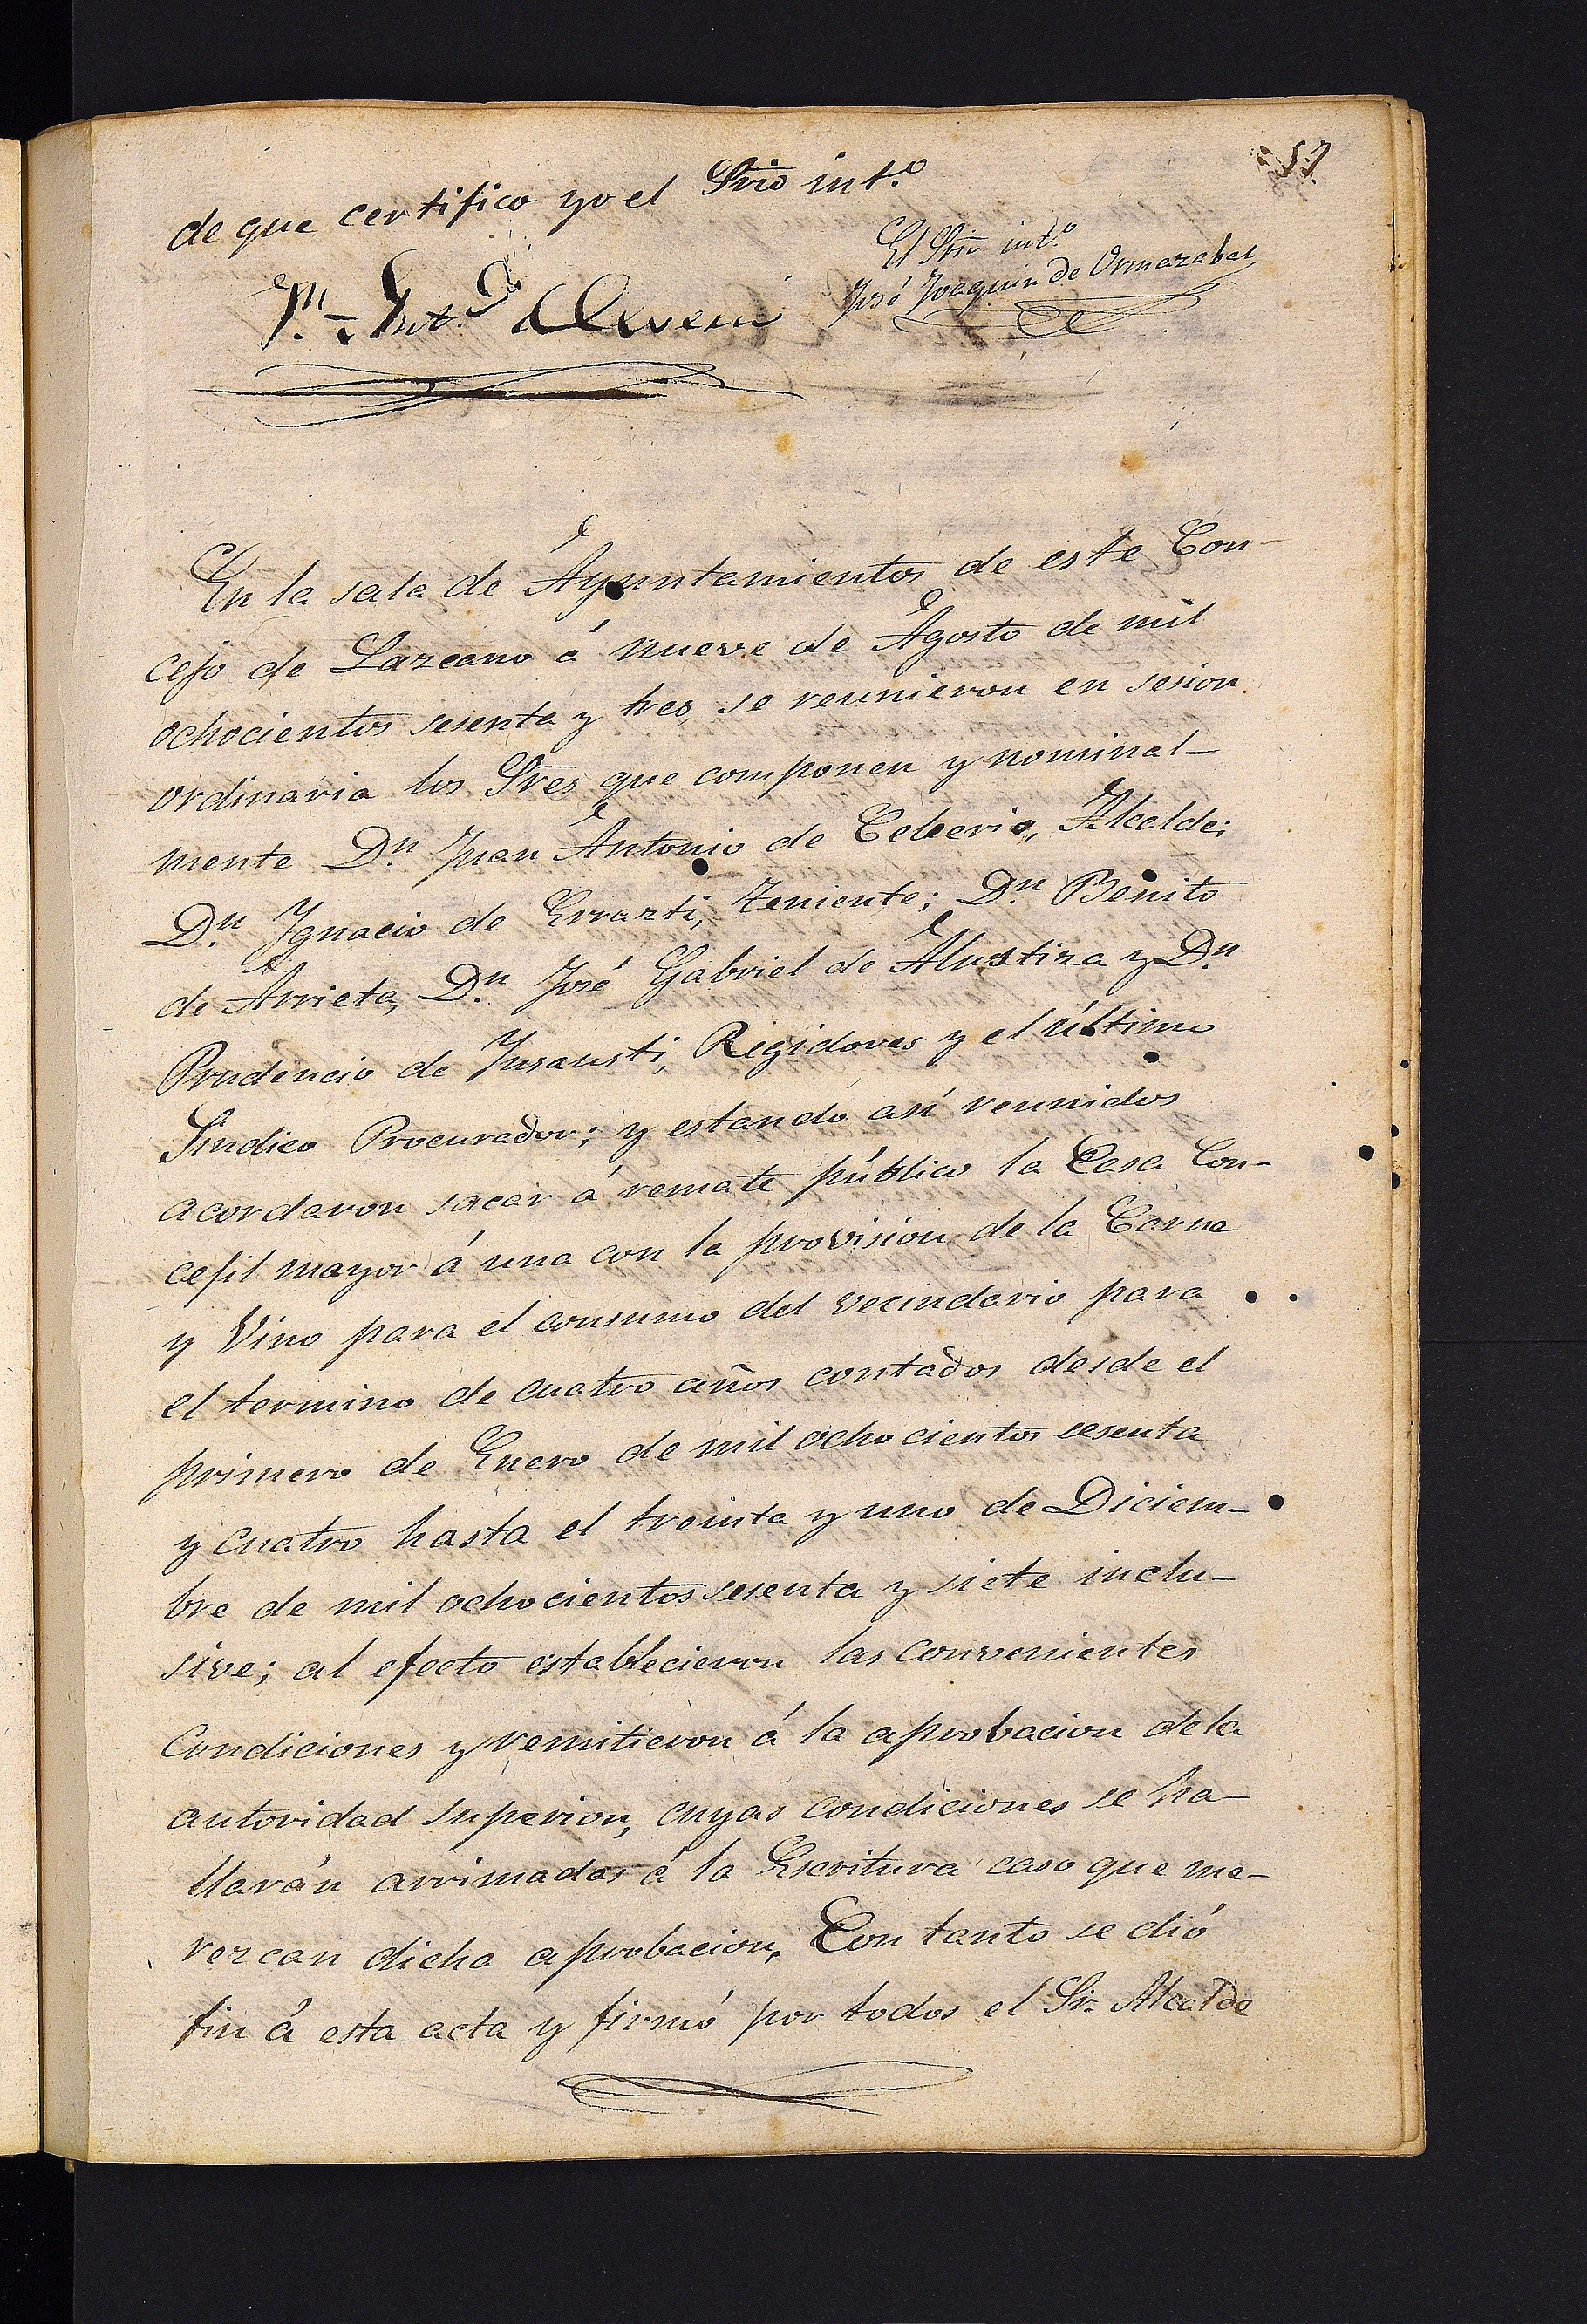 57
de que certifico yo el Srio int.º
El Srio int.º
José Joaquin de Ormazabal
En la sala de Ayuntamientos de este Con-
cejo de Lazcano á nueve de Agosto de mil
ochocientos sesenta y tres se reunieron en sesion
ordinaria los Sres que componen y nominal-
mente D.n Juan Antonio de Celeerio, Alcalde;
D.n Ygnacio de Errazti, Teniente; D.n Benito
de Arrieta, D.n José Gabriel de Alustiza y D.n
Prudencio de Ynsausti, Regidores y el último
Sindico Procurador; y estando así reunidos
acordaron sacar á remate público la Casa Con-
cejil mayor á una con la provision de la Carne
y Vino para el consumo del vecindario para
el termino de cuatro años contados desde el
primero de Enero de mil ochocientos sesenta
y cuatro hasta el treinta y uno de Diciem-
bre de mil ochocientos sesenta y siete inclu-
sive; al efecto establecieron las convenientes
Condiciones y remitieron á la aprobacion de la
autoridad superior, cuyas condiciones se ha-
llarán arrimadas á la Escritura caso que me-
rezcan dicha aprobacion. Con tanto se dió
fin á esta acta y firmó por todos el Sr. Alcalde